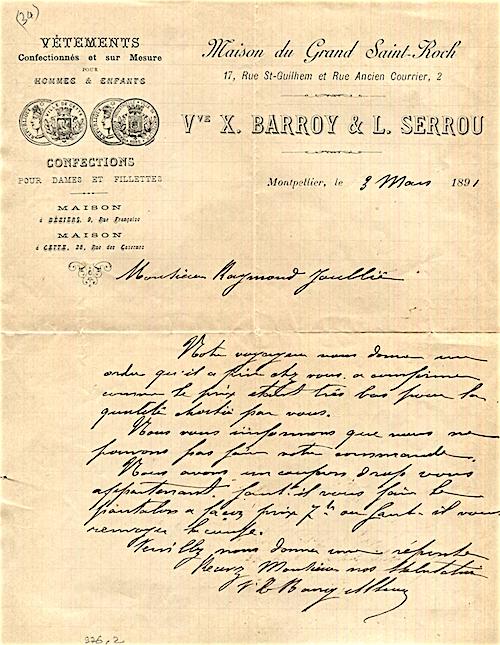 (34)
VÊTEMENTS
Confectionnés et sur Mesure
POUR
HOMMES & ENFANTS
CONFECTIONS
POUR DAMES ET FILLETTES
MAISON
à BÉZIERS, 9, Rue Française
MAISON
à CETTE, 28, Rue des Casernes
Maison du Grand Saint-Roch
17, Rue St-Guilhem et Rue Ancien Courrier, 2
Vve X. BARROY & L. SERROU
Montpellier, le 3 Mars 1891
Monsieur Raymond Joullié
Notre voyageur nous donne un
ordre qu'il a pris chez vous a confirmer
comme le prix etait très bas pour la
qualité choisie par vous.
Nous vous informons que nous ne
pouvons pas faire votre commande.
Nous avons un coupons drap vous
appartenant. faut-il vous faire le
pantalon a façon prix 7f ou faut-il vous
renvoyer le coupe.
Veuillez nous donner une réponse
Recevez Monsieur nos Salutations
376,2